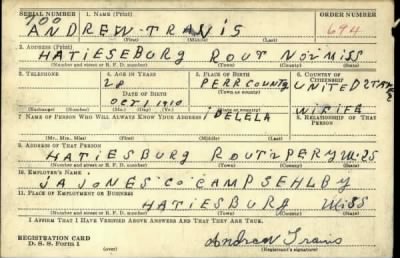 SERIAL NUMBER 1. NAME (Print) ORDER NUMBER
100 ANDREW TRAVIS 694
(First) (Middle) (Last)
2. ADDRESS (Print)
HATIESEBURG ROUT NO2 MISS
(Number and street or R. F. D. number) (Town) (County) (State)
3. TELEPHONE 4. AGE IN YEARS 5. PLACE OF BIRTH 6. COUNTRY OF CITIZENSHIP
28 PERR COUNTY UNITED STATE
DATE OF BIRTH
OCT 1 1910
(Exchange) (Number) (Mo.) (Day) (Yr.) (State or country)
7. NAME OF PERSON WHO WILL ALWAYS KNOW YOUR ADDRESS 8. RELATIONSHIP OF THAT PERSON
IDELELA WIFIFE
(Mr., Mrs., Miss) (First) (Middle) (Last)
9. ADDRESS OF THAT PERSON
HATIESBURG ROUT 2 PERY MISS
(Number and street or R. F. D. number) (Town) (County) (State)
10. EMPLOYER'S NAME
JA JONES CO CAMP SEHLBY
11. PLACE OF EMPLOYMENT OR BUSINESS
HATIESBURG MISS
(Number and street or R. F. D. number) (Town) (County) (State)
I AFFIRM THAT I HAVE VERIFIED ABOVE ANSWERS AND THAT THEY ARE TRUE.
REGISTRATION CARD
D. S. S. Form 1 (over) Andrew Travis
(Registrant's signature)